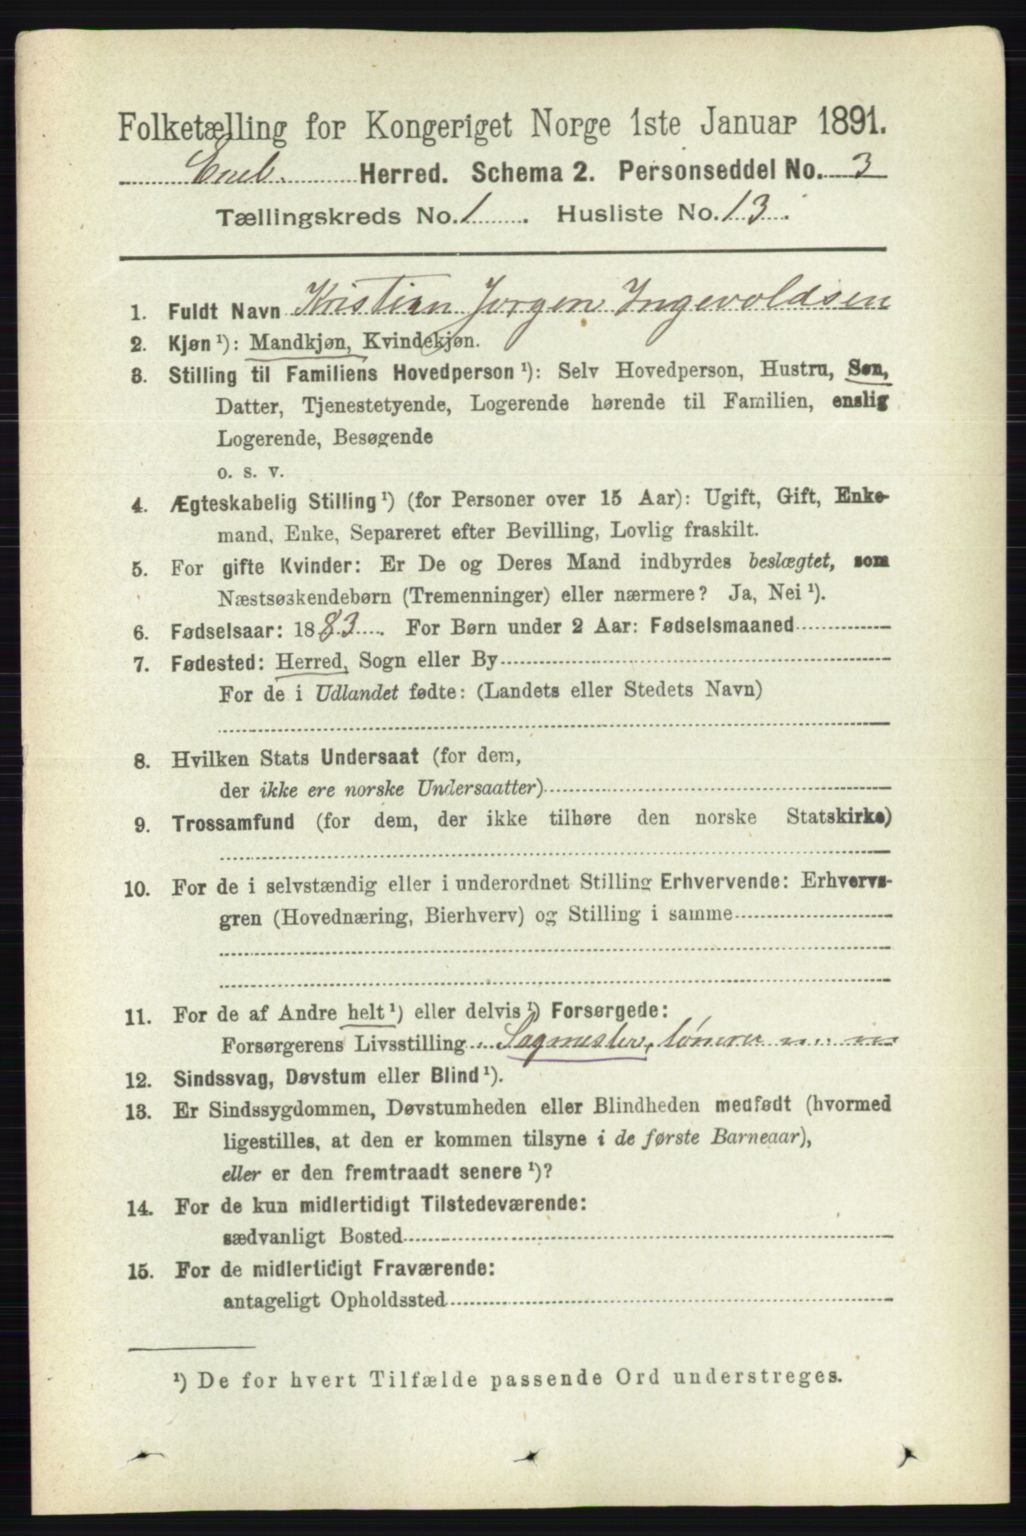 Folketælling for Kongeriget Norge 1ste Januar 1891.
Herred. Schema 2. Personseddel No. 3
Tællingskreds No. 1. Husliste No. 13.
1. Fuldt Navn Kristian Jørgen Ingevoldsen
2. Kjøn ¹): Mandkjøn, Kvindekjøn.
3. Stilling til Familiens Hovedperson ¹): Selv Hovedperson, Hustru, Søn,
Datter, Tjenestetyende, Logerende hørende til Familien, enslig
Logerende, Besøgende
o. s. v.
4. Ægteskabelig Stilling ¹) (for Personer over 15 Aar): Ugift, Gift, Enke-
mand, Enke, Separeret efter Bevilling, Lovlig fraskilt.
5. For gifte Kvinder: Er De og Deres Mand indbyrdes beslægtet, som
Næstsøskendebørn (Tremenninger) eller nærmere? Ja, Nei ¹).
6. Fødselsaar: 1883. For Børn under 2 Aar: Fødselsmaaned
7. Fødested: Herred, Sogn eller By
For de i Udlandet fødte: (Landets eller Stedets Navn)
8. Hvilken Stats Undersaat (for dem,
der ikke ere norske Undersaatter)
9. Trossamfund (for dem, der ikke tilhøre den norske Statskirke)
10. For de i selvstændig eller i underordnet Stilling Erhvervende: Erhvervs-
gren (Hovednæring, Bierhverv) og Stilling i samme
11. For de af Andre helt ¹) eller delvis ¹) Forsørgede:
Forsørgerens Livsstilling Sagmester,
12. Sindssvag, Døvstum eller Blind ¹).
13. Er Sindssygdommen, Døvstumheden eller Blindheden medfødt (hvormed
ligestilles, at den er kommen tilsyne i de første Barneaar),
eller er den fremtraadt senere ¹)?
14. For de kun midlertidigt Tilstedeværende:
sædvanligt Bosted
15. For de midlertidigt Fraværende:
antageligt Opholdssted
¹) De for hvert Tilfælde passende Ord understreges.